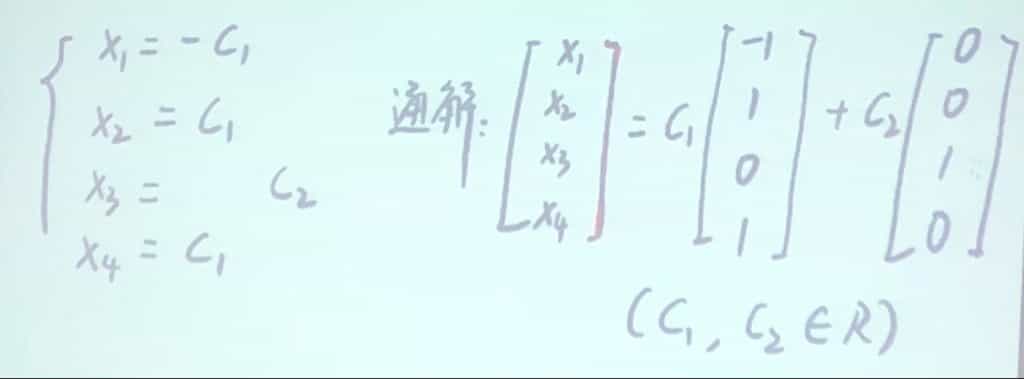 x₁ = -C₁
x₂ = C₁
x₃ = C₂
x₄ = C₁
通解: [x₁ x₂ x₃ x₄] = C₁ [-1 1 0 1] + C₂ [0 0 1 0]
(C₁, C₂ ∈ R)